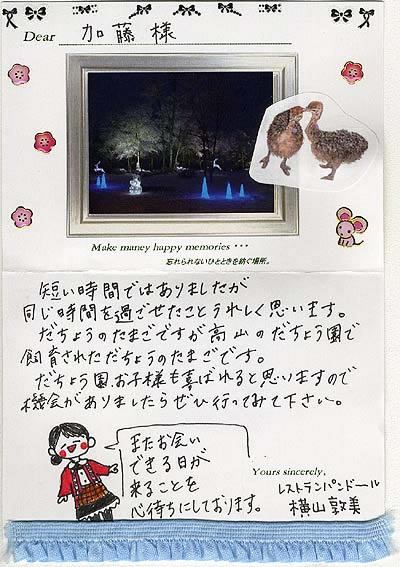 Dear 加藤 様
Make maney happy memories・・・
忘れられないひとときを紡ぐ場所。
短い時間ではありましたが
同じ時間を過ごせたことうれしく思います。
だちょうのたまごですが高山のだちょう園で
飼育されただちょうのたまごです。
だちょう園、お子様も喜ばれると思いますので
機会がありましたらぜひ行ってみて下さい。
またお会い
できる日が
来ることを
心待ちにしております。
Yours sincerely,
レストランパンドール
横山敦美